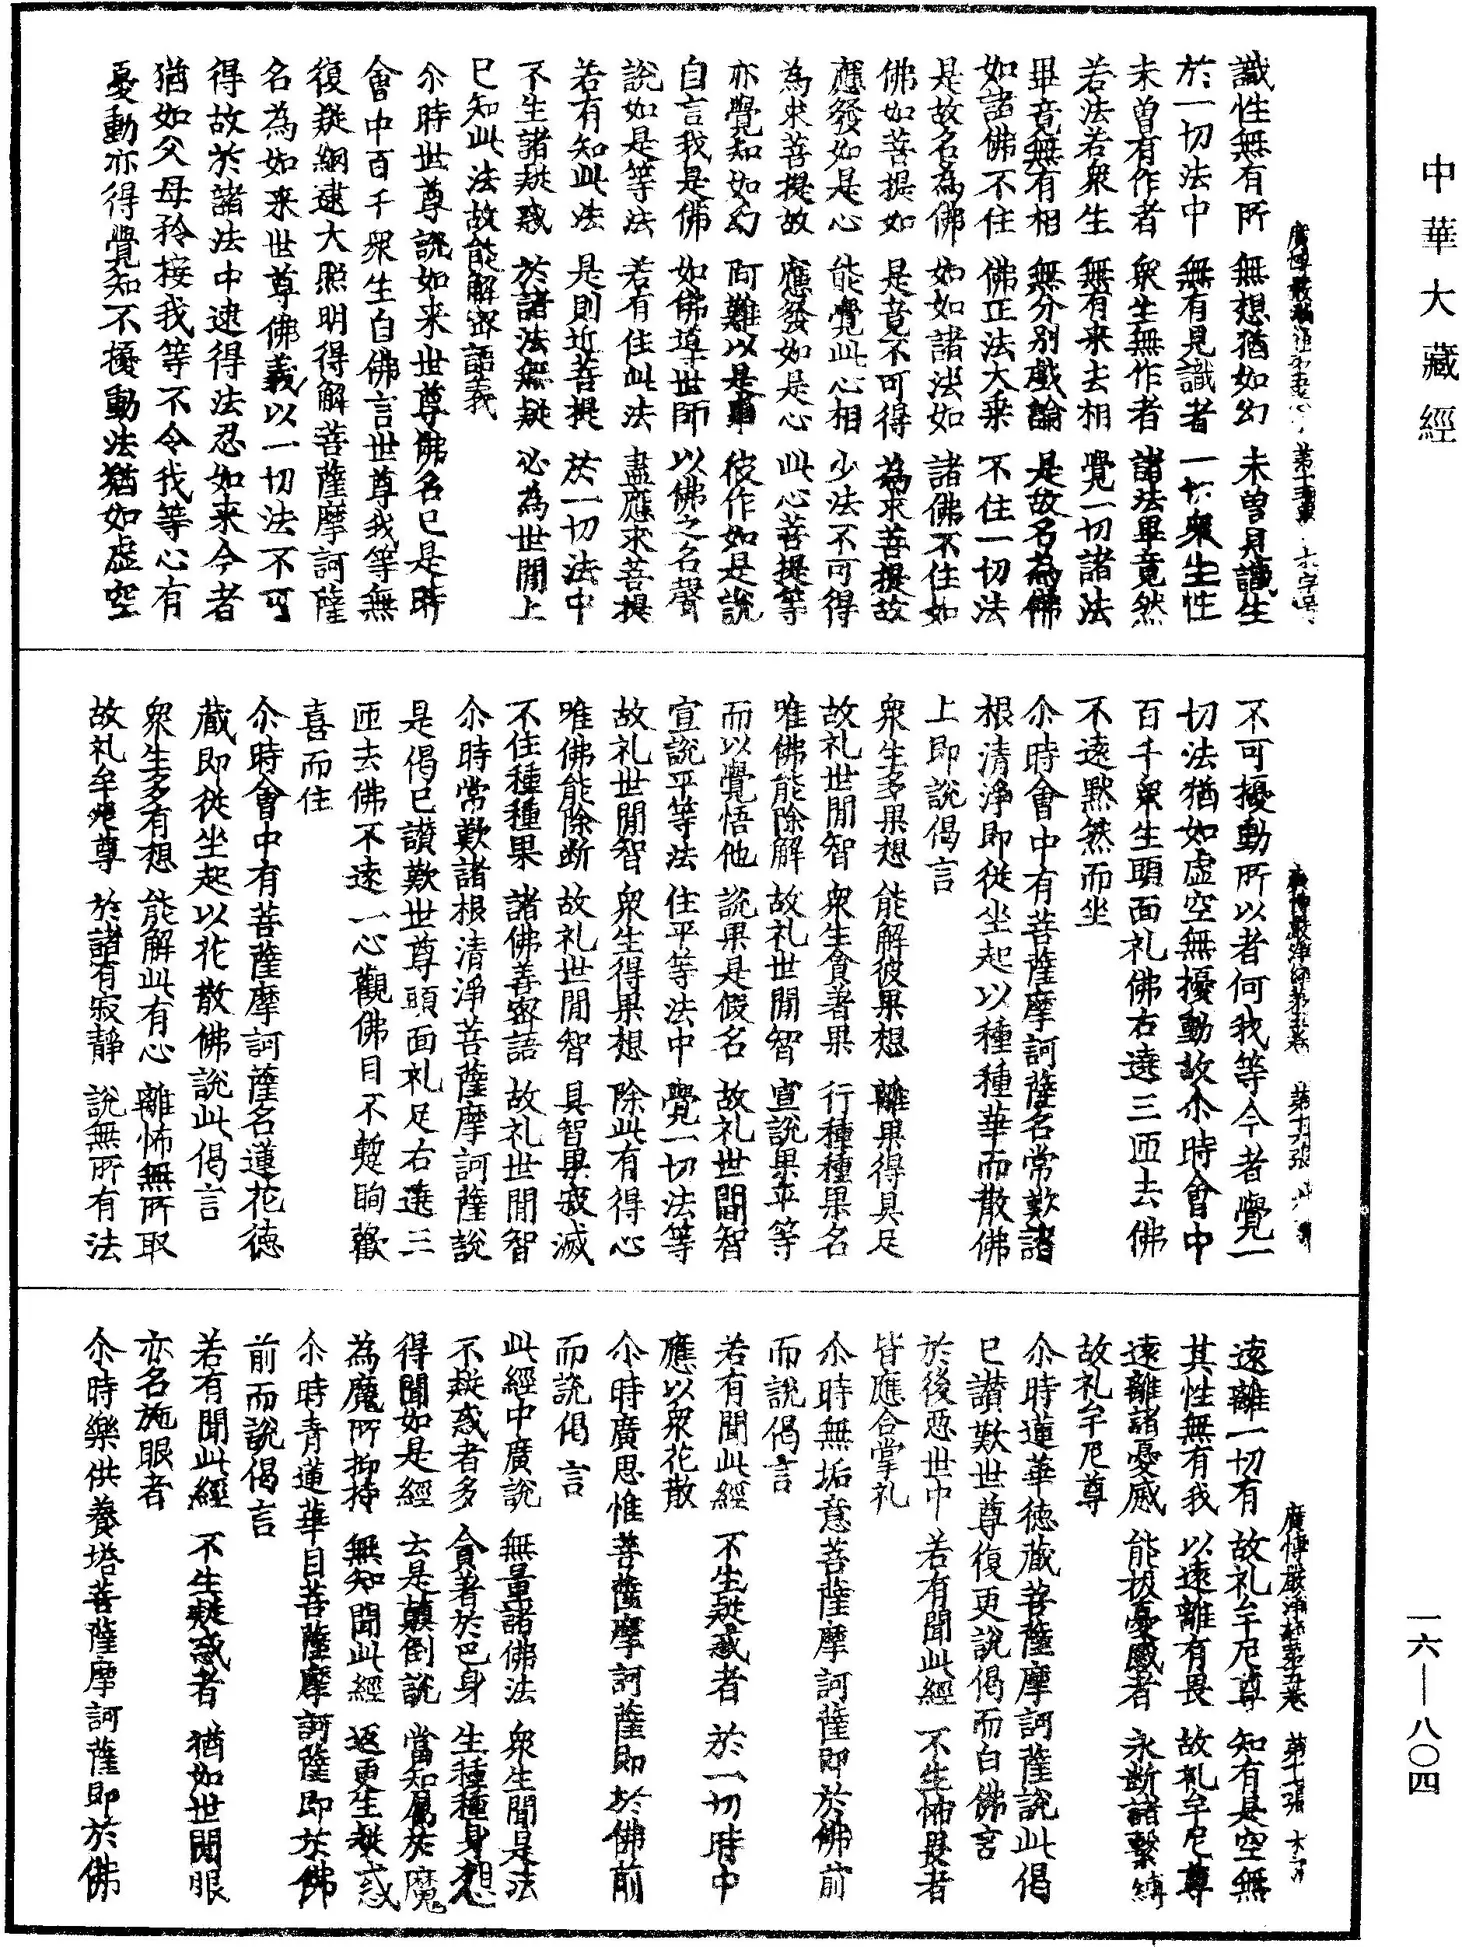 中華大藏經
識性無有所　無想猶如幻　未曾見識生
於一切法中　無有見識者　一切眾生性
未曾有作者　眾生無作者　諸法畢竟然
若法若眾生　無有来去相　覺一切諸法
畢竟無有相　無分別戲論　是故名為佛
如諸佛不住　佛正法大乗　不住一切法
是故名為佛　如如諸法如　諸佛不住如
佛如菩提如　是竟不可得　為求菩提故
應發如是心　能覺此心相　少法不可得
為求菩提故　應發如是心　此心菩提等
亦覺知如幻　阿難以是事　彼作如是說
自言我是佛　如佛導世師　以佛之名聲
說如是等法　若有住此法　盡應求菩提
若有知此法　是則近菩提　於一切法中
不生諸疑惑　於諸法無疑　必為世閒上
已知此法故能解密語義
尒時世尊說如来世尊佛名已是時
會中百千眾生白佛言世尊我等無
復疑網逮大照明得解菩薩摩訶薩
名為如来世尊佛義以一切法不可
得故於諸法中逮得法忍如来今者
猶如父母矜接我等不令我等心有
憂動亦得覺知不擾動法猶如虛空
不可擾動所以者何我等今者覺一
切法猶如虛空無擾動故尒時會中
百千眾生頭面礼佛右遶三匝去佛
不遠黙然而坐
尒時會中有菩薩摩訶薩名常歎諸
根清淨即從坐起以種種華而散佛
上即說偈言
眾生多果想　能解彼果想　離果得具足
故礼世閒智　眾生貪著果　行種種果名
唯佛能除解　故礼世閒智　宣說果平等
而以覺悟他　說果是假名　故礼世閒智
宣說平等法　住平等法中　覺一切法等
故礼世閒智　眾生得果想　除此有得心
唯佛能除断　故礼世閒智　具智果寂滅
不住種種果　諸佛善密語　故礼世閒智
尒時常歎諸根清淨菩薩摩訶薩說
是偈已讚歎世尊頭面礼足右遶三
匝去佛不遠一心觀佛目不蹔眴歡
喜而住
尒時會中有菩薩摩訶薩名蓮花德
藏即從坐起以花散佛說此偈言
眾生多有想　能解此有心　離怖無所取
故礼牟尼尊　於諸有寂靜　說無所有法
遠離一切有　故礼牟尼尊　知有是空無
其性無有我　以遠離有畏　故礼牟尼尊
遠離諸憂慼　能拔憂慼者　永断諸繫縛
故礼牟尼尊
尒時蓮華德藏菩薩摩訶薩說此偈
已讃歎世尊復更說偈而白佛言
於後惡世中　若有聞此經　不生怖畏者
皆應合掌礼
尒時無垢意菩薩摩訶薩即於佛前
而說偈言
若有聞此經　不生疑惑者　於一切時中
應以眾花散
尒時廣思惟菩薩摩訶薩即於佛前
而說偈言
此經中廣說　無量諸佛法　眾生聞是法
不疑惑者多　貪著於已身　生種種身想
得聞如是經　去是顛倒說　當知屬於魔
為魔所抑持　無知聞此經　返更生疑惑
尒時青蓮華目菩薩摩訶薩即於佛
前而說偈言
若有聞此經　不生疑惑者　猶如世閒眼
亦名施眼者
尒時樂供養塔菩薩摩訶薩即於佛
一六—八〇四